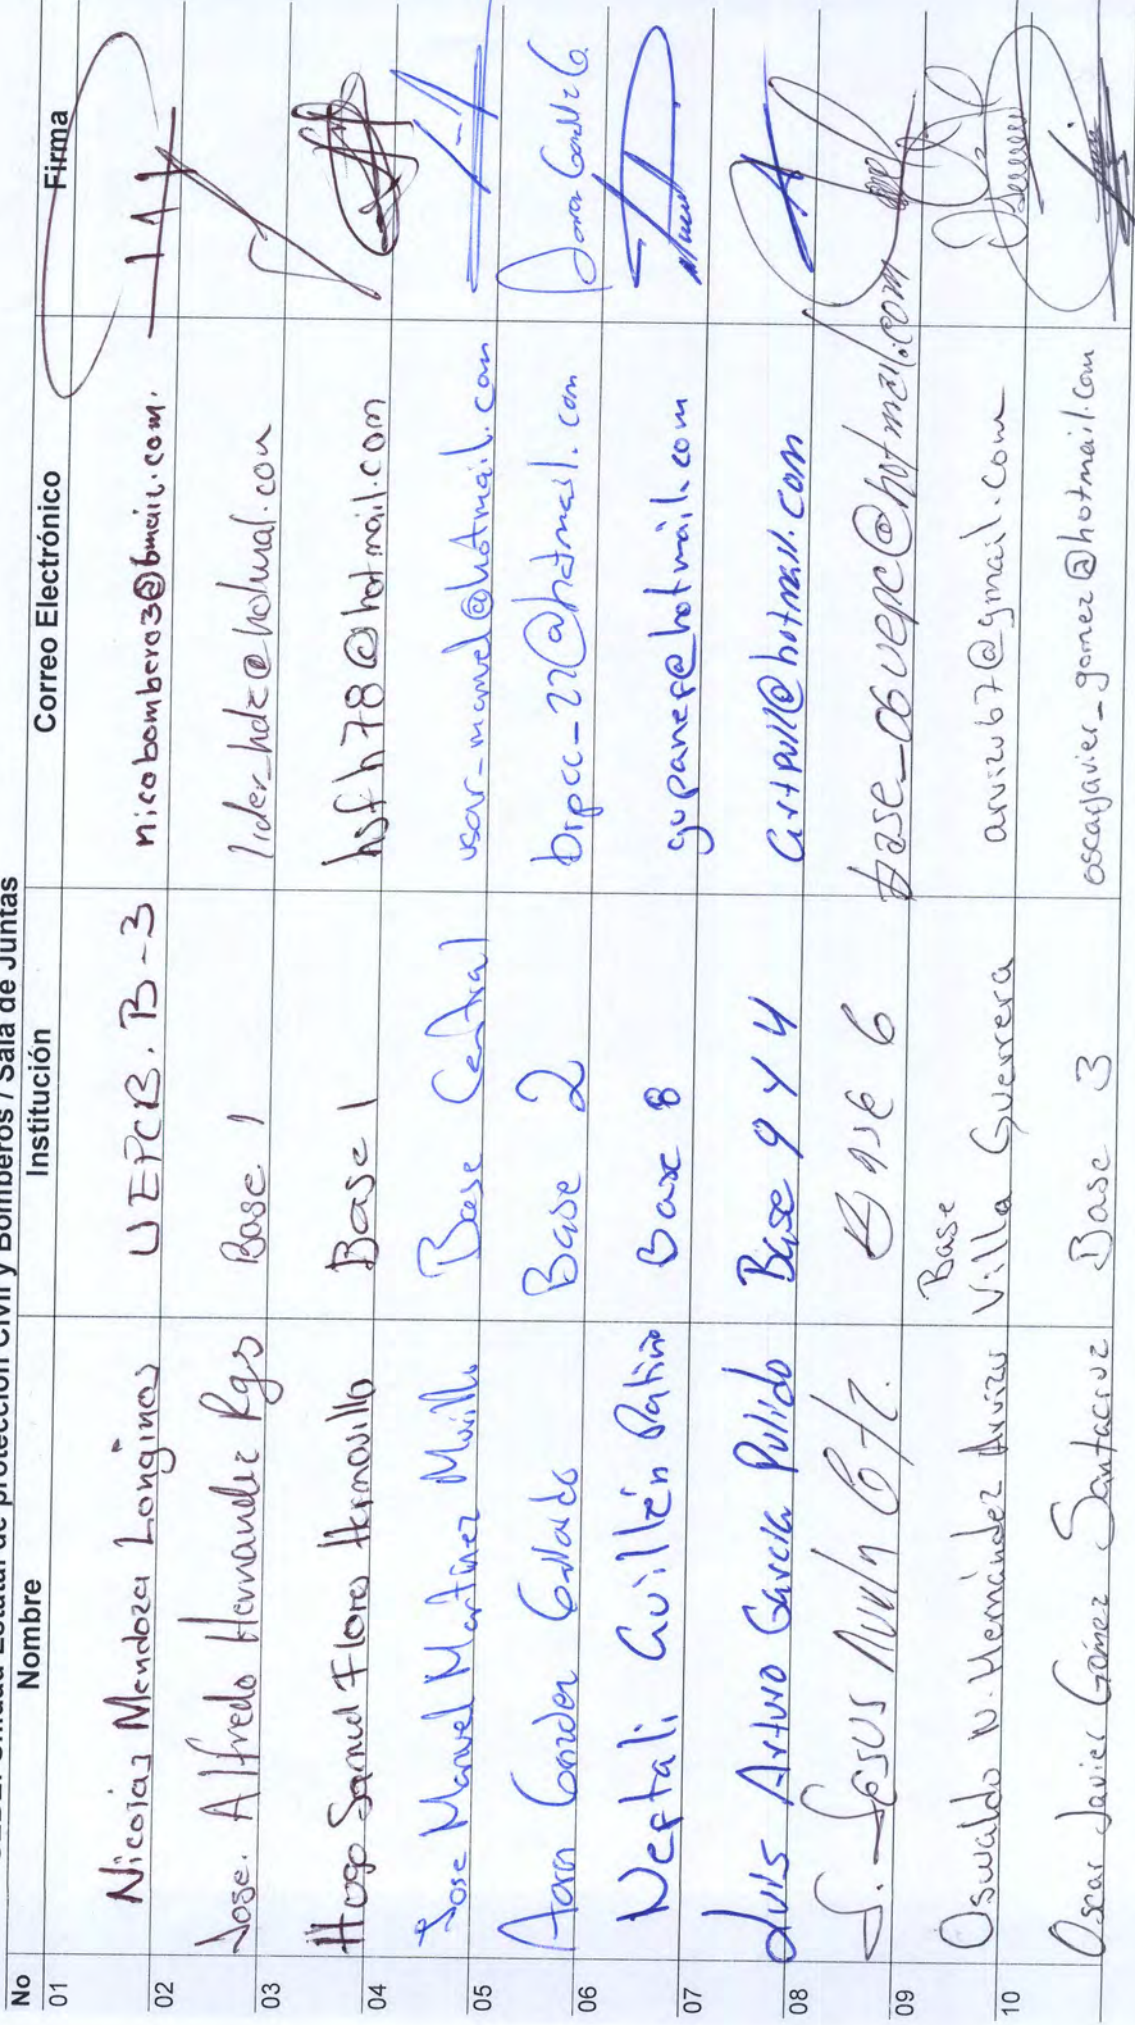 Unidad Estatal de protección Civil y Bomberos / Sala de Juntas
No Nombre Institución Correo Electrónico Firma
01 Nicolás Mendoza Longinos UEPCB. B-3 nicobombero3@gmail.com.
02 Jose. Alfredo Hernandez Rgs Base 1 lider_hdz@hotmal.com
03 Hugo Samuel Flores Hermosillo Base 1 hsfh78@hotmail.com
04 Jose Manuel Martinez Murillo Base Central usar_manuel@hotmail.com
05 Aaron Gonzalez Gallardo Base 2 brpcc_22@hotmail.com
06 Neftali Guillén Patiño Base 8 gupanef@hotmail.com
07 Luis Arturo García Pulido Base 9 y 4 artpull@hotmail.com
08 J. Jesus Base 6 base_06uepc@hotmail.com
09 Oswaldo N. Hernández Arvizu Base Villa Guerrera arvizu67@gmail.com
10 Oscar Javier Gómez Santacruz Base 3 oscarjavier_gomez@hotmail.com